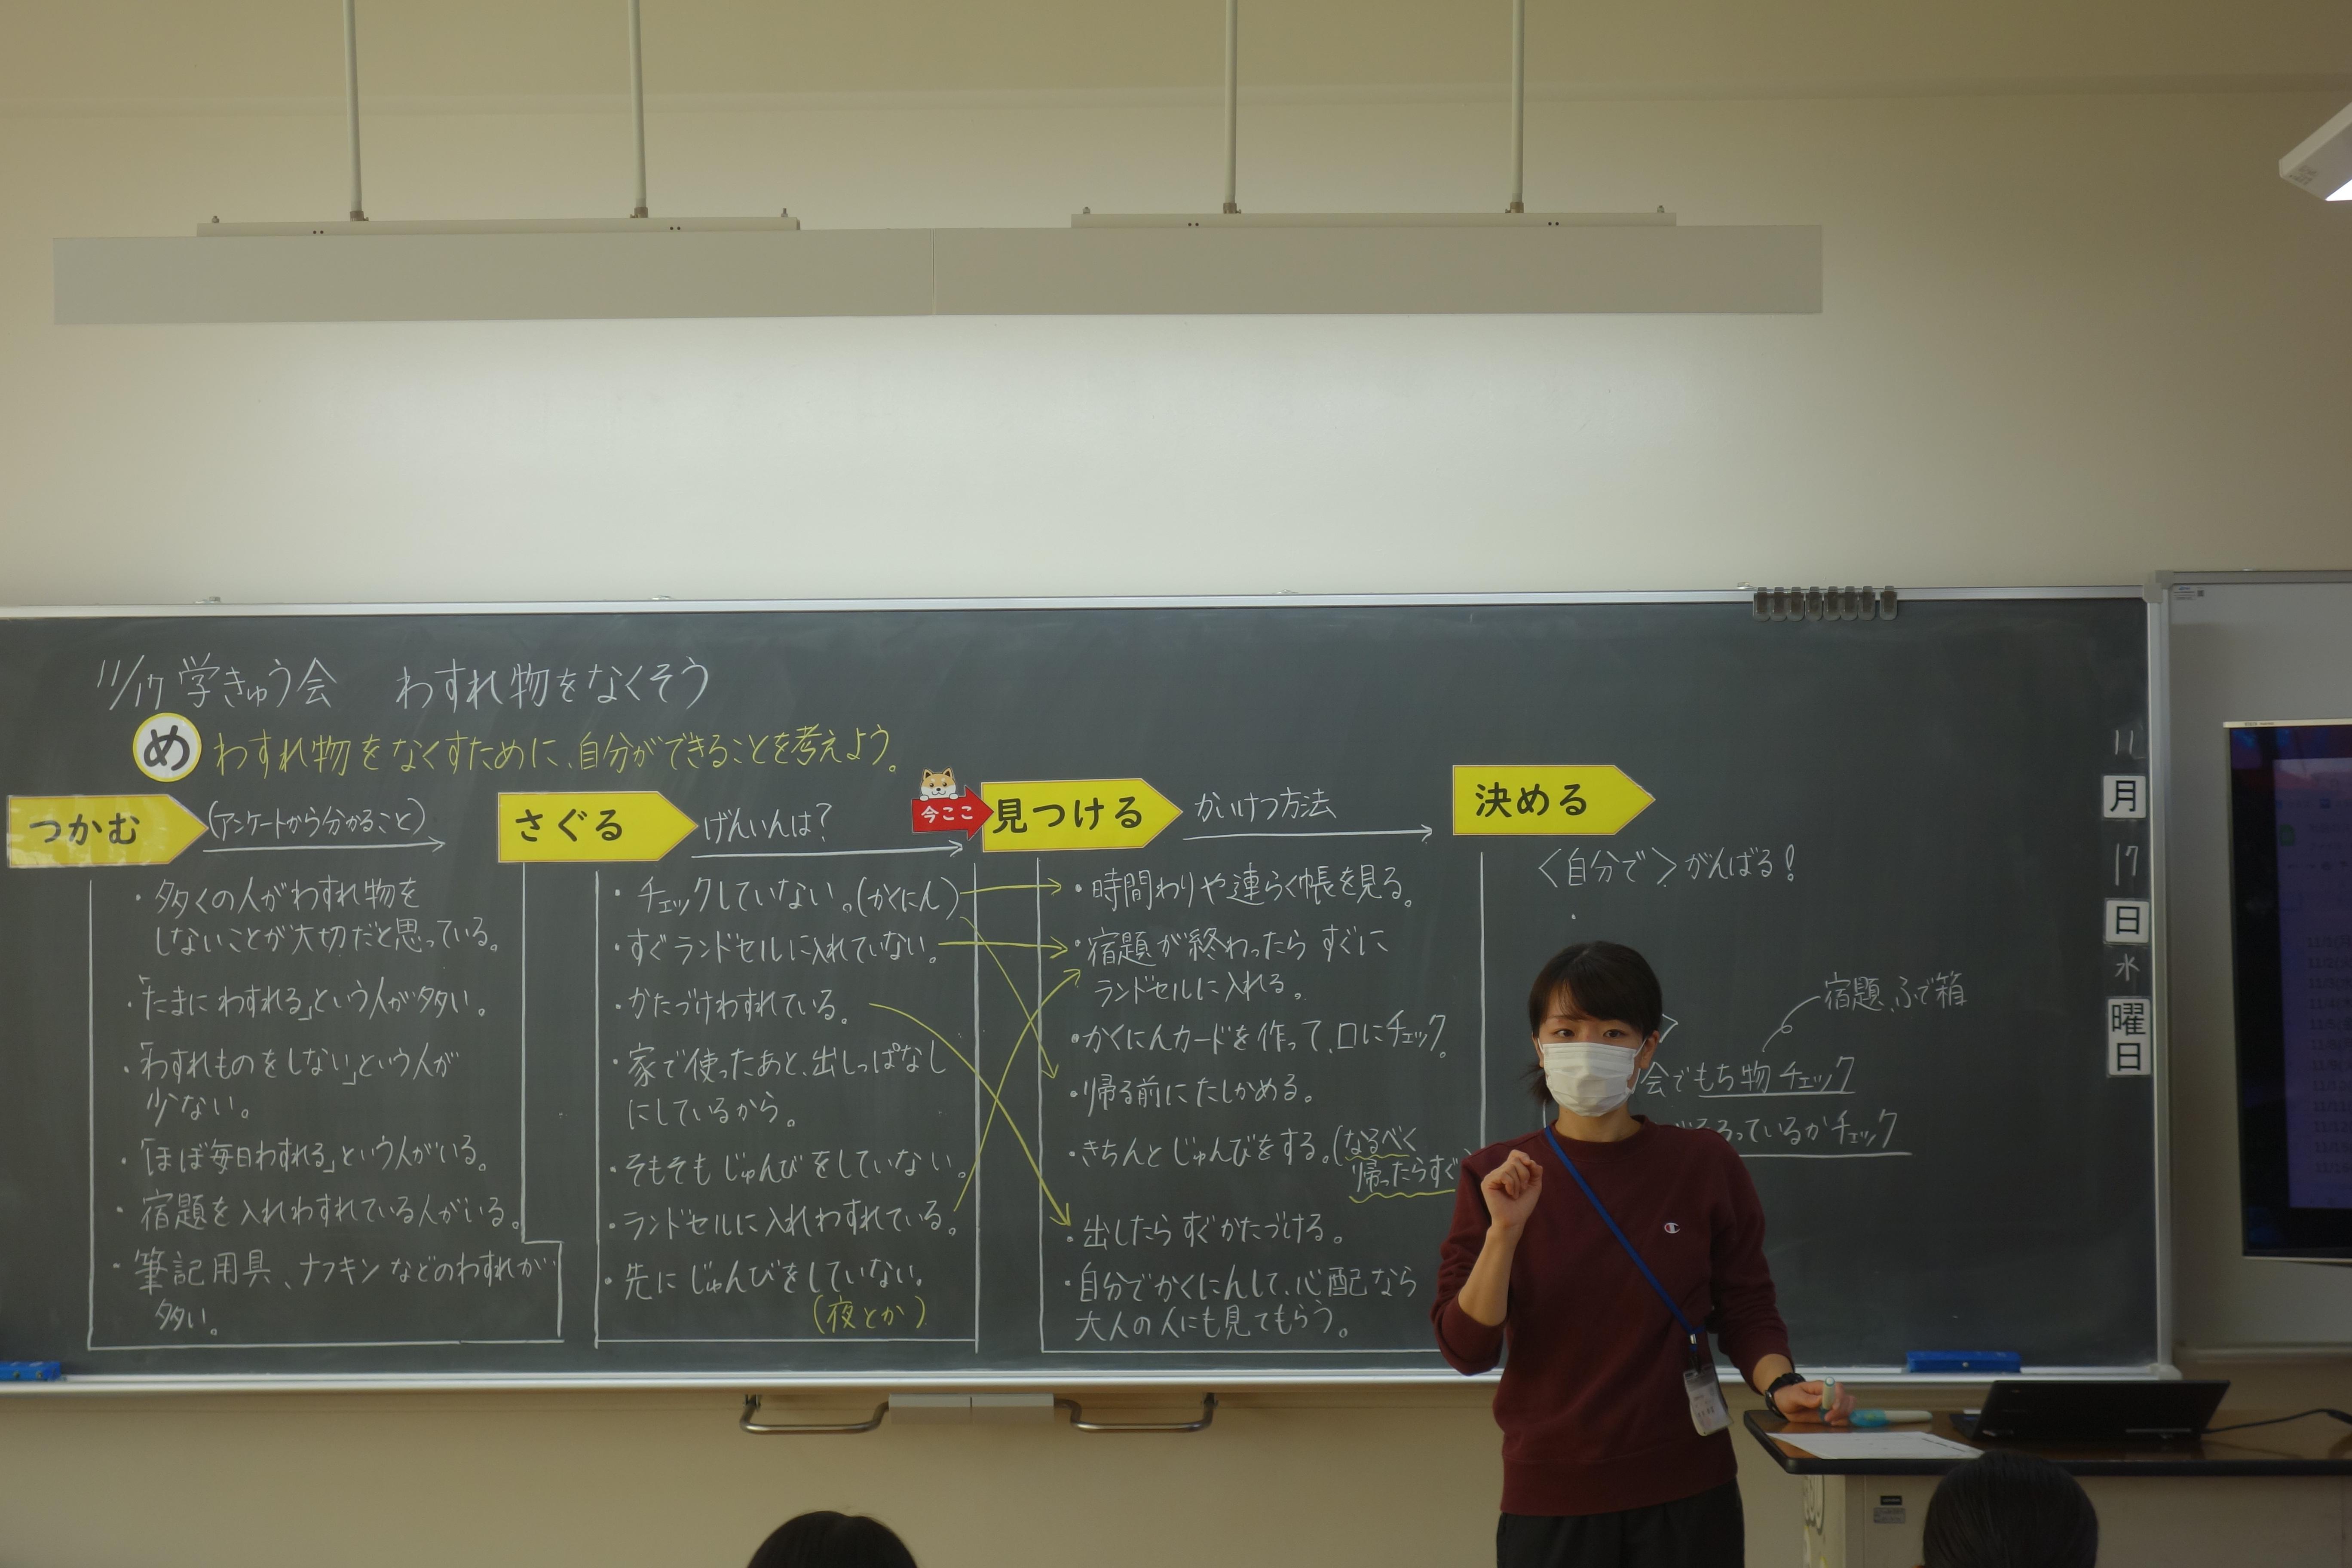 11/17 学きゅう会 わすれ物をなくそう
め わすれ物をなくすために、自分ができることを考えよう。
つかむ (アンケートから分かること)
・多くの人がわすれ物を
しないことが大切だと思っている。
・「たまにわすれる」という人が多い。
・「わすれものをしない」という人が
少ない。
・「ほぼ毎日わすれる」という人がいる。
・宿題を入れわすれている人がいる。
・筆記用具、ナフキンなどのわすれが
多い。
さぐる げんいんは?
・チェックしていない。(かくにん)
・すぐランドセルに入れていない。
・かたづけわすれている。
・家で使ったあと、出しっぱなし
にしているから。
・そもそもじゅんびをしていない。
・ランドセルに入れわすれている。
・先にじゅんびをしていない。
(夜とか)
今ここ
見つける かいけつ方法
・時間わりや連らく帳を見る。
・宿題が終わったらすぐに
ランドセルに入れる。
・かくにんカードを作って、□にチェック。
・帰る前にたしかめる。
・きちんとじゅんびをする。(なるべく
帰ったらすぐ
・出したらすぐかたづける。
・自分でかくにんして、心配なら
大人の人にも見てもらう。
決める
<自分で>がんばる!
・
宿題、ふで箱
会でもち物チェック
っているかチェック
11
月
17
日
水
曜
日